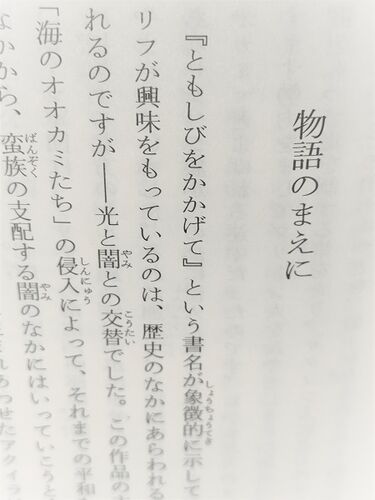 物語のまえに
『ともしびをかかげて』という書名が象徴的に示して
リフが興味をもっているのは、歴史のなかにあらわれる
れるのですが――光と闇との交替でした。この作品の
「海のオオカミたち」の侵入によって、それまでの平和
なかから、蛮族の支配する闇のなかにはいっていこうと